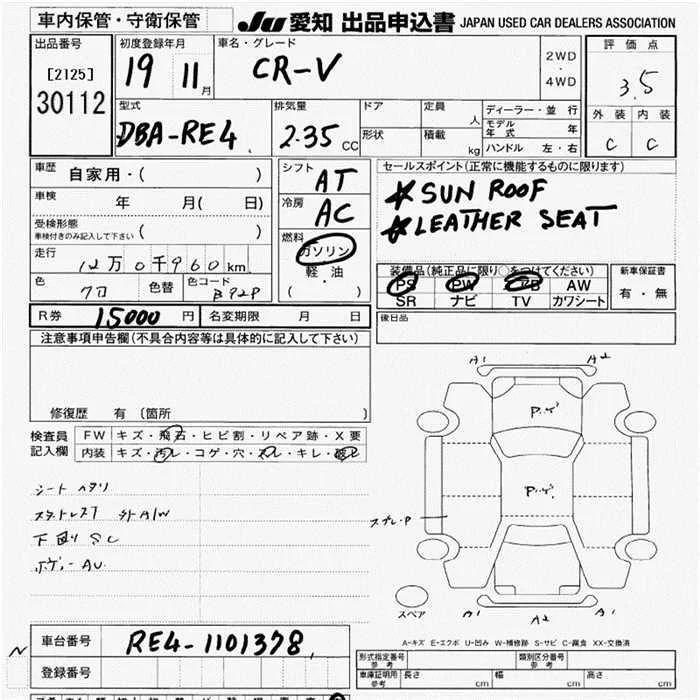 車内保管・守衛保管
JU 愛知 出品申込書 JAPAN USED CAR DEALERS ASSOCIATION
出品番号 初度登録年月 車名・グレード 評価点
[2125] 19 11月 CR-V 2WD・4WD 3.5
30112
型式 排気量 ドア 定員 人 ディーラー・並 行 外装 内装
DBA-RE4 2.35 CC 形状 積載 kg モデル年式 年 C C
ハンドル 左・右
車歴 自家用・( ) シフト AT セールスポイント(正常に機能するものに限ります)
車検 年 月( 日) 冷房 AC ★SUN ROOF
受検形態 ( ) ★LEATHER SEAT
車検付きのみ記入して下さい 燃料 ガソリン
走行 12万0千960km 軽・油 装備品(純正品に限り○をつけてください) 新車保証書
色 色替 色コード B92P ( ) PS PW AB AW 有・無
SR ナビ TV カワシート
R券 15000円 名変期限 月 日 後日品
注意事項申告欄(不具合内容等は具体的に記入して下さい)
修復歴 有 〔箇所 〕
検査員 FW キズ・飛石・ヒビ割・リペア跡・X要
記入欄 内装 キズ・汚レ・コゲ・穴・スレ・キレ・破レ
A1 A2
P.ゲ
P.ゲ
シート ヘタリ
スタットレス7 外A/W スプレ-P
下廻り SC
ボデー AU
スペア A1 A2 A1
A-キズ E-エクボ U-凹み W-補修跡 S-サビ C-腐食 XX-交換済
N 車台番号 RE4-1101378
登録番号
形式指定番号 参考 類別区分番号 参考
車庫証明用 参考 長さ cm 幅 cm 高さ cm